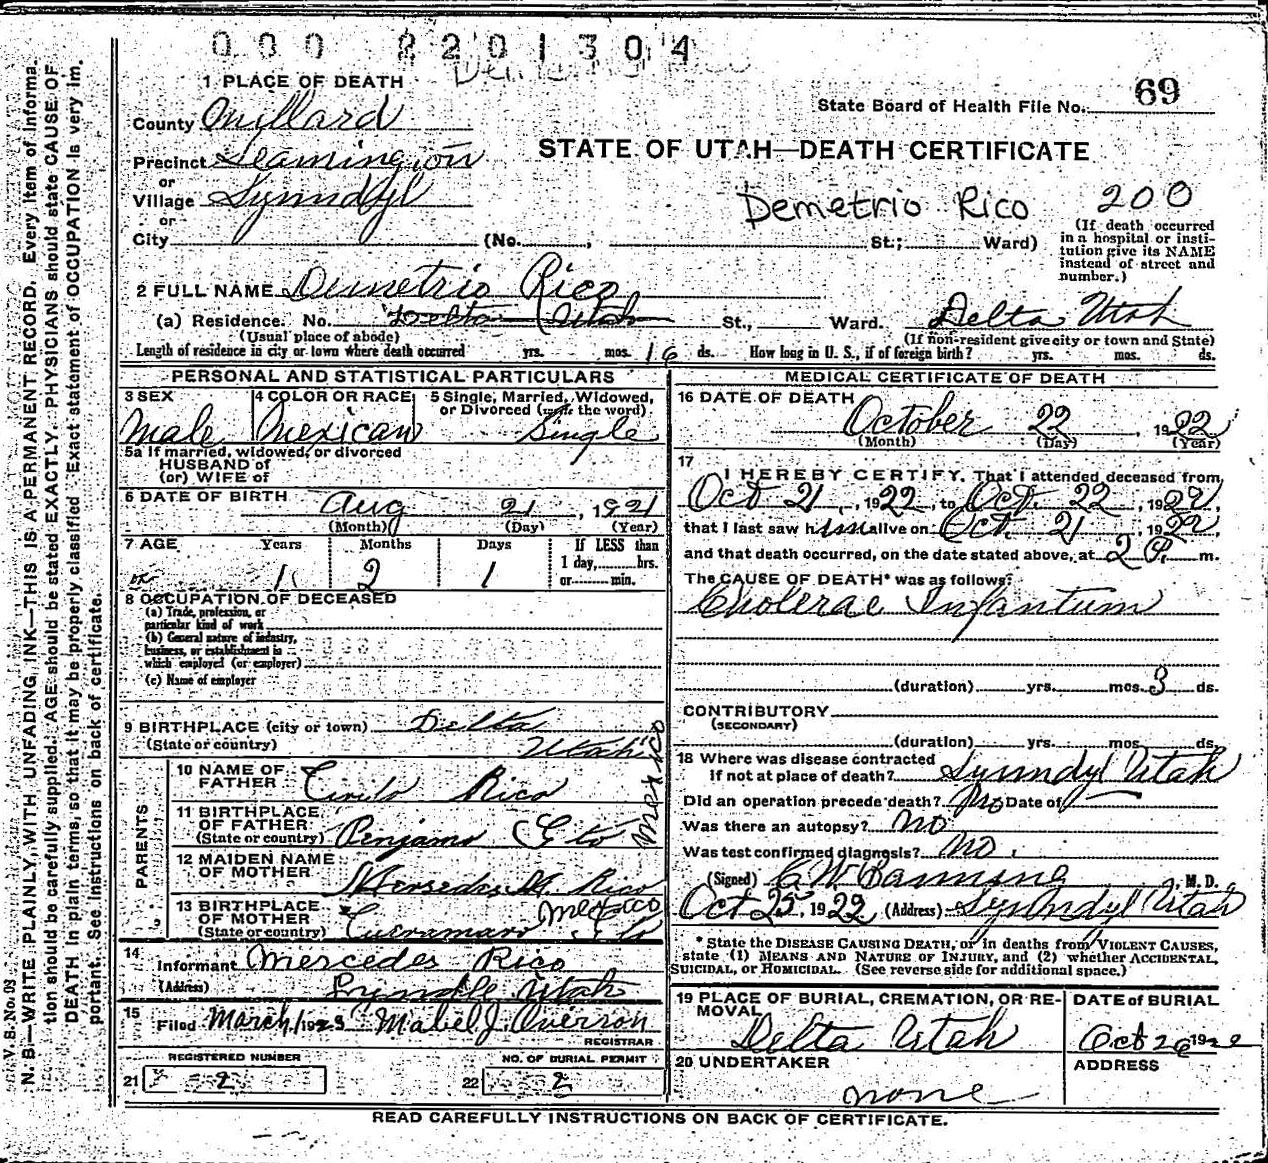 000 2201304
1 PLACE OF DEATH
County Millard
State Board of Health File No. 69
Precinct Leamington
STATE OF UTAH—DEATH CERTIFICATE
or
Village Lynndyl
Demetrio Rico 200
or
City (No. , St.; Ward)
(If death occurred in a hospital or insti-
tution give its NAME
instead of street and
number.)
2 FULL NAME Demetrio Rico
(a) Residence. No. Delta Utah St., Ward. Delta Utah
(Usual place of abode) (If non-resident give city or town and State)
Length of residence in city or town where death occurred yrs. mos. 16 ds. How long in U. S., if of foreign birth? yrs. mos. ds.
PERSONAL AND STATISTICAL PARTICULARS
3 SEX 4 COLOR OR RACE 5 Single, Married, Widowed,
or Divorced (write the word)
Male Mexican Single
5a If married, widowed, or divorced
HUSBAND of
(or) WIFE of
6 DATE OF BIRTH Aug 21, 1921
(Month) (Day) (Year)
7 AGE Years Months Days If LESS than
1 day, hrs.
or min.
1 2 1
8 OCCUPATION OF DECEASED
(a) Trade, profession, or
particular kind of work
(b) General nature of industry,
business, or establishment in
which employed (or employer)
(c) Name of employer
9 BIRTHPLACE (city or town) Delta
(State or country) Utah
PARENTS
10 NAME OF
FATHER Rico
11 BIRTHPLACE
OF FATHER
(State or country) Penjamo Gto Mexico
12 MAIDEN NAME
OF MOTHER Mersedes M. Rico
13 BIRTHPLACE
OF MOTHER Mexico
(State or country) Cueramaro Gto
14
Informant Mercedes Rico
(Address) Lynndyl Utah
15
Filed March 1 1923 Mabel J. Overson
REGISTRAR
REGISTERED NUMBER NO. OF BURIAL PERMIT
21 2 22 2
MEDICAL CERTIFICATE OF DEATH
16 DATE OF DEATH
October 22, 1922
(Month) (Day) (Year)
17
I HEREBY CERTIFY, That I attended deceased from
Oct 21, 1922, to Oct. 22, 1922,
that I last saw him alive on Oct. 21, 1922,
and that death occurred, on the date stated above, at 2 P. m.
The CAUSE OF DEATH* was as follows:
Cholerae Infantum
(duration) yrs. mos. 3 ds.
CONTRIBUTORY
(SECONDARY)
(duration) yrs. mos. ds.
18 Where was disease contracted
if not at place of death? Lynndyl Utah
Did an operation precede death? No Date of
Was there an autopsy? No
Was test confirmed diagnosis? No.
(Signed) M. D.
Oct 25, 1922 (Address) Lynndyl Utah
* State the DISEASE CAUSING DEATH, or in deaths from VIOLENT CAUSES,
state (1) MEANS AND NATURE OF INJURY, and (2) whether ACCIDENTAL,
SUICIDAL, or HOMICIDAL. (See reverse side for additional space.)
19 PLACE OF BURIAL, CREMATION, OR RE-
MOVAL DATE of BURIAL
Delta Utah Oct 26 1922
20 UNDERTAKER ADDRESS
none
READ CAREFULLY INSTRUCTIONS ON BACK OF CERTIFICATE.
V. S. No. 98
N. B.—WRITE PLAINLY, WITH UNFADING INK—THIS IS A PERMANENT RECORD. Every item of informa-
tion should be carefully supplied. AGE should be stated EXACTLY. PHYSICIANS should state CAUSE OF
DEATH in plain terms, so that it may be properly classified. Exact statement of OCCUPATION is very im-
portant. See instructions on back of certificate.